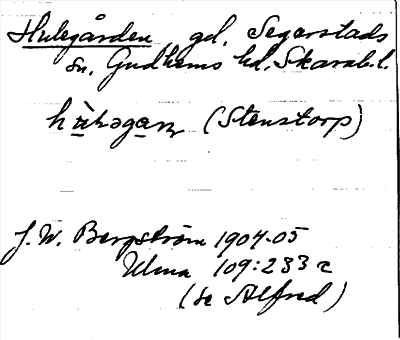 Hulegården gd. Segerstads
sn. Gudhems hd. Skarab.l.
(Stenstorp)
J. W. Bergström 1904-05
Ulma 109:233 a
(se Alfred)